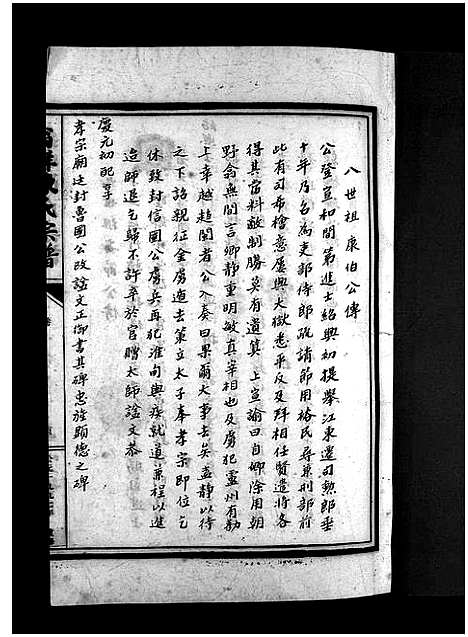 八世祖康伯公傳
公登宣和間第進士紹興初提舉江東還司勲郎垂
十年乃名為吏部侍郎疏請節用裕民尋兼刑部前
此有司希檜意屢興大獄悉平反及拜相任賢選將各
得其當料敵制勝莫有遺算上宣諭曰自卿除用朝
野僉無間言卿靜重明敏真宰相也及虜犯廬州有勸
上幸越趨閩者公入奏曰果爾大事去矣盍靜以待
之下詔親征金虜遁去策立太子奉孝宗即位乞
休致封信國公虜兵再犯淮甸輿疾就道兼程以進
造師退乞歸不許卒於官贈太師謚文恭
慶元初配享
孝宗廟廷封魯國公改謚文正御書其碑忠旌顯德之碑
氏宗譜